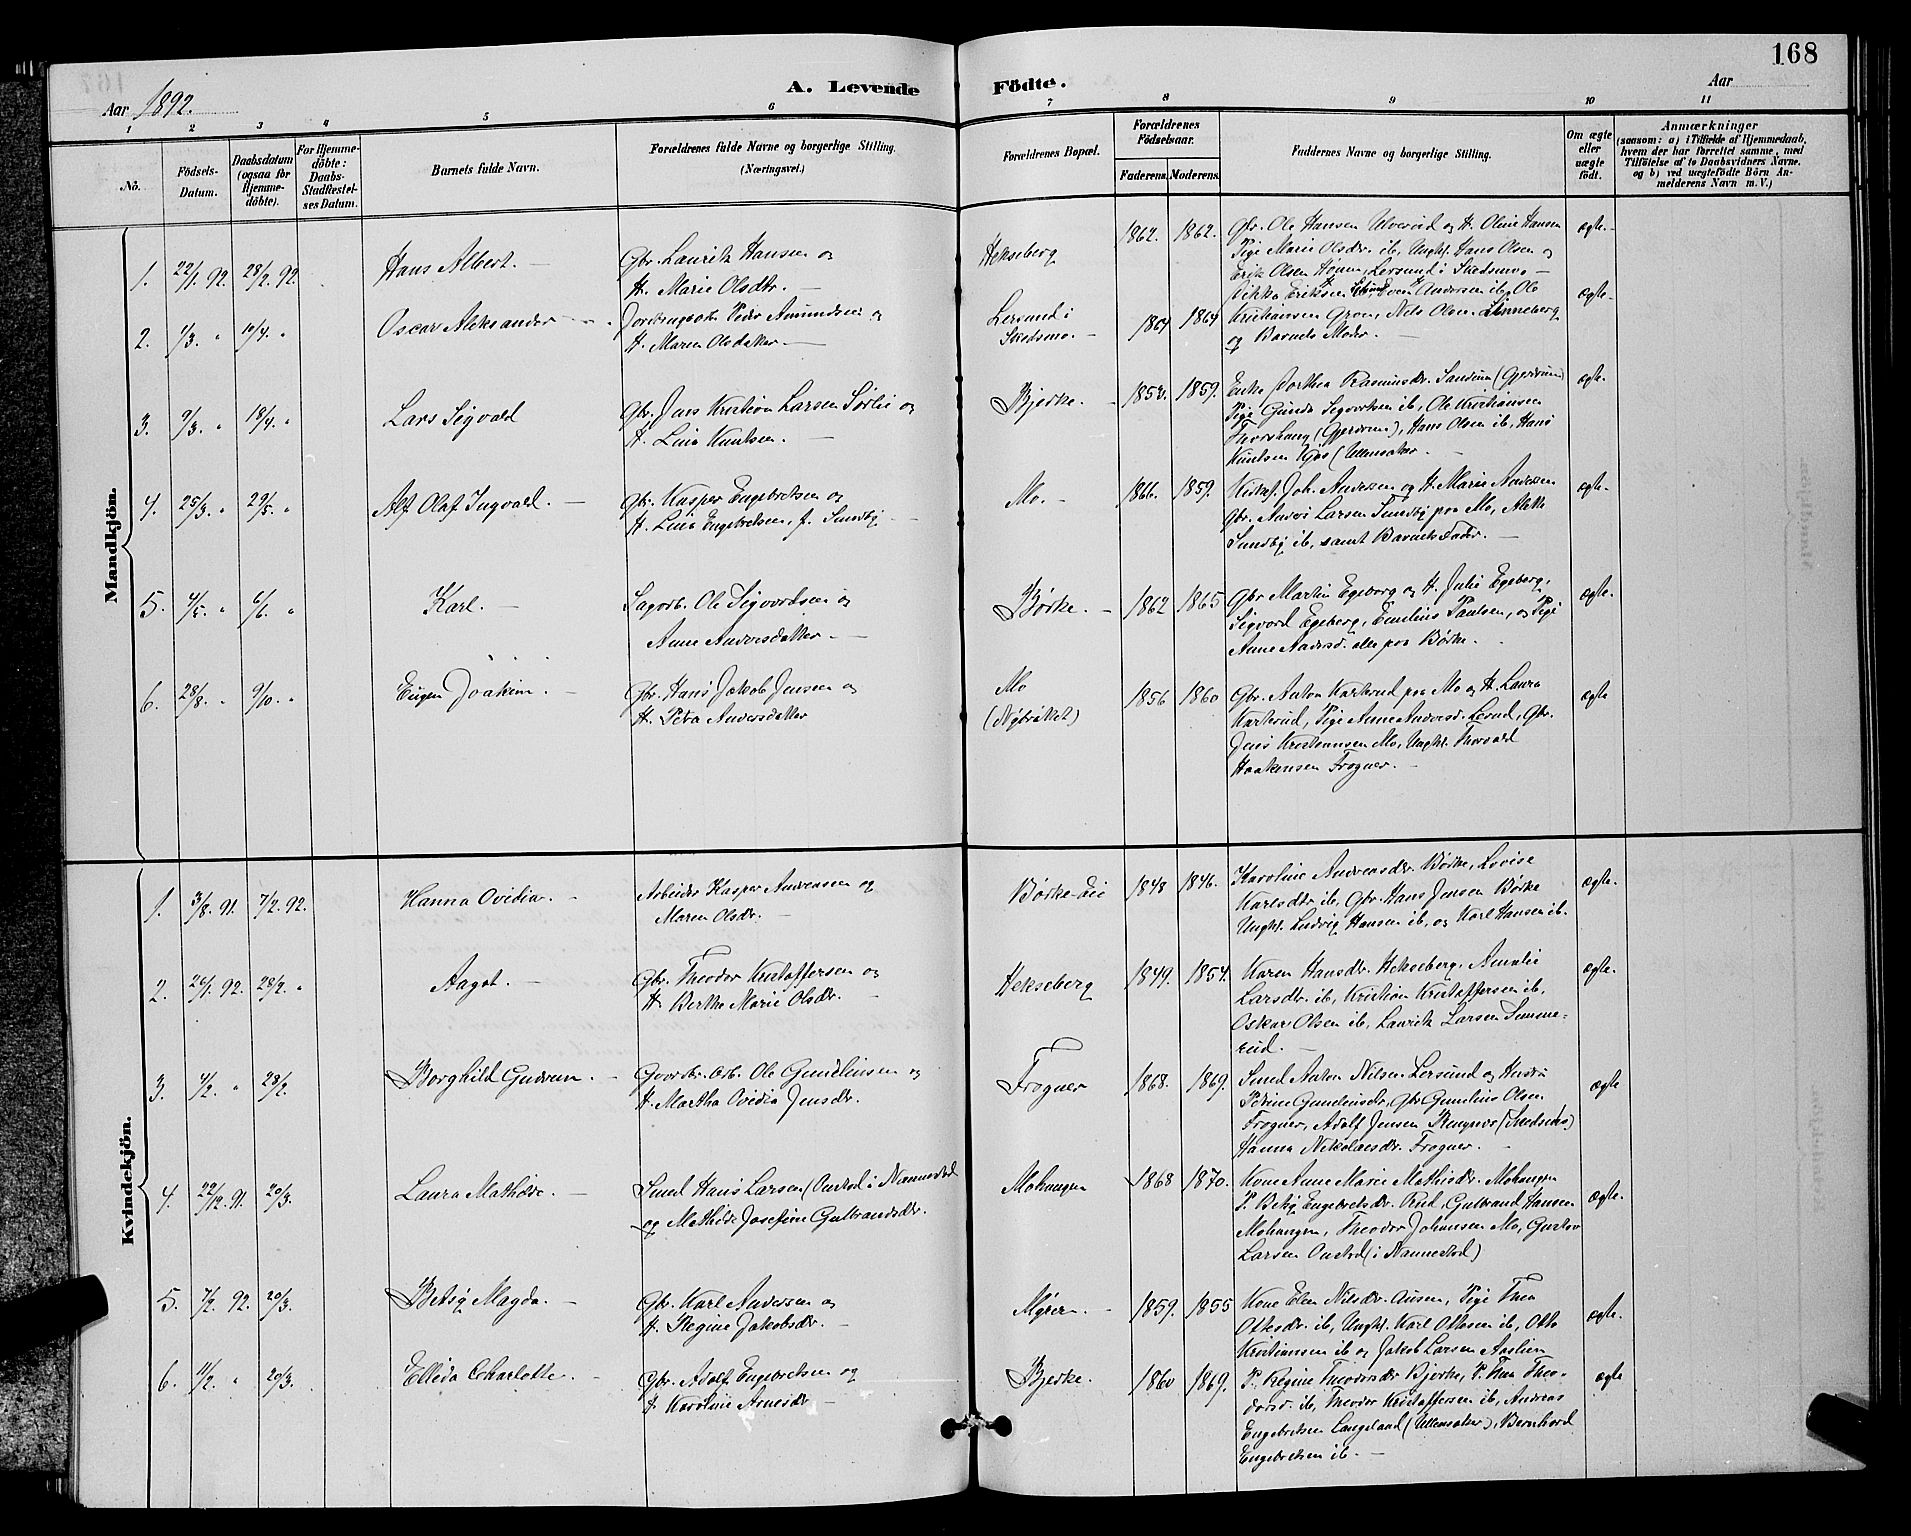 168
Aar 1892.
A. Levende Födte.
Aar
1 2 3 4 5 6 7 8 9 10 11
No.
Födsels-
Datum.
Daabsdatum
(ogsaa for
Hjemme-
döbte).
For Hjemme-
döbte:
Daabs-
Stadfæstel-
ses Datum.
Barnets fulde Navn.
Forældrenes fulde Navne og borgerlige Stilling.
(Næringsvei.)
Forældrenes Bopæl.
Forældrenes
Födselsaar.
Faderens. Moderens.
Faddernes Navne og borgerlige Stilling.
Om ægte
eller
uægte
födt.
Anmærkninger
(saasom: a) i Tilfælde af Hjemmedaab,
hvem der har forrettet samme, med
Tilföielse af to Daabsvidners Navne,
og b) ved uægtefödte Börn An-
melderens Navn m. V.)
Mandkjön.
1. 22/1 92. 28/2 92. Hans Albert. Gbr. Lauritz Hansen og
H. Marie Olsdtr.
Hekseberg 1862. 1862. Gbr. Ole Hansen Ulverud og H. Oline Hansen
Pige Marie Olsdr. ib, Ungk. Hans Olsen og
Erik Olsen, Lersund i Skedsmo
ægte.
2. 1/3 " 10/4 " Oscar Aleksander Peder Amundsen og
H. Maren Olsdatter
Lersund i
Skedsmo. 1864 1864 Eriksen Even Andersen ib, Ole
Kristiansen Nils Olsen Linneberg
og Barnets Moder.
ægte.
3. 9/3 " 18/4 " Lars Sigvald Gbr. Jens Kristian Larsen Sørlie og
H. Lina Knutsen.
Bjerke. 1853. 1859. Enke Dorthea Rasmusdr. Sandum (Gjerdrum)
Pige Gunda Segvortsen ib, Ole Kristiansen
(Gjerdrum), Hans Olsen ib, Hans
Knutsen Kjos (Ullensaker.
ægte.
4. 25/3 " 29/5 " Alf Olaf Ingvald. Gbr. Kasper Engebretsen og
H. Lina Engebretsen, f. Sundby
Mo. 1866. 1859. Joh. Andersen og H. Marie Andersen
Gbr. Anders Larsen Sundby paa Mo,
Sundby ib, samt Barnets Fader.
ægte.
5. 4/5 " 6/6 " Karl. Sagarb. Ole Sigvordsen og
Anne Andersdatter
Børke. 1862 1865 Gbr Martin Egeberg og H. Julie Egeberg,
Sigvord Egeberg, Emilius Paulsen, og Pige
Anne Andersd. alle paa Børke.
ægte.
6. 28/8 " 9/10 " Eugen Joakim. Gbr. Hans Jakob Jensen og
H. Petra Andersdatter
Mo
(Nybråttet) 1856 1860 Gbr. Anton Karterud paa Mo og H. Laura
Karterud, Pige Anne Andersd. Gbr.
Jens Kristiansen Mo, Ungk. Thorvald
Haakensen Frogner.
ægte
Kvindekjön.
1. 3/8 91. 7/2 92. Hanna Ovidia. Arbeider Kasper Andreasen og
Maren Olsdr.
Børke-eie 1848 1846. Karoline Andreasdr. Børke, Lovise
Karlsdtr ib, Gbr. Hans Jensen Børke
Ungk. Ludvig Hansen ib, og Karl Hansen ib.
ægte.
2. 26/1 92. 28/2 " Aagot. Gbr. Theodor Kristoffersen og
H. Berthe Marie Olsdr.
Hekseberg 1849. 1854. Karen Hansdr. Hekseberg, Amalie
Larsdr. ib, Kristian Kristoffersen ib,
Oskar Olsen ib, Lauritz Larsen Simme-
rud.
ægte.
3. 4/2 " 28/2. Borghild Gudrun. Ole Gundinsen og
H. Martha Ovidia Jensdr.
Frogner 1868. 1869. Smed Anton Nilsen Lersund og Hustru
Petrine Gbr Olsen
Frogner, Adolf Jensen (Skedsmo)
Hanna Nikolaesdr. Frogner.
ægte
4. 22/12. 91. 20/3. Laura Mathilde. Smed Hans Larsen (Onstad i Nannestad
og Mathilde Josefine Gulbrandsdr.
Mohangen 1868 1870. Kone Anne Marie Mathisdr. Mohangen
P. Betsy Engebretsdr. Rud, Gulbrand Hansen
Mohangen, Theodor Johansen Mo, Gustav
Larsen Onstad (i Nannestad)
ægte.
5. 7/2. 92. 20/3. Betsy Magda. Gbr. Karl Andersen og
H. Regine Jakobsdr.
Myrern. 1859. 1855 Kone Elen Nilsdr. Ausen, Pige Thea
Ottesdr. ib, Ungk. Karl Ottesen ib, Otto
Kristiansen ib og Jakob Larsen Aaslien
ægte.
6. 11/2. " 20/3. Ellida Charlotte. Gbr. Adolf Engebretsen og
H. Karoline Arnesdr
Bjerke. 1860 1869. P. Regine Theodorsdr Bjerke, P. Thea Theo-
dorsd. ib, Theodor Kristoffersen ib, Andreas
Engebretsen Langeland (Ullensaker), Bernhard
Engebretsen ib.
ægte